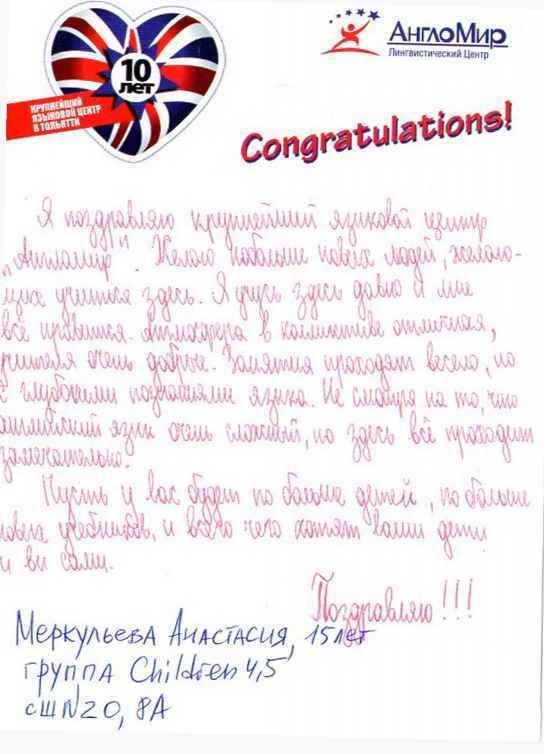 10
лет
КРУПНЕЙШИЙ
ЯЗЫКОВОЙ ЦЕНТР
В ТОЛЬЯТТИ
АнглоМир
Лингвистический Центр
Congratulations!
Я поздравляю крупнейший языковой центр
„Англомир". Желаю побольше новых людей, желаю-
щих учиться здесь. Я учусь здесь давно и мне
всё нравится. Атмосфера в коллективе отличная,
учителя очень добрые. Занятия проходят весело, но
с глубокими познаниями языка. Не смотря на то, что
английский язык очень сложный, но здесь всё проходит
замечательно.
Пусть у вас будет по больше детей, по больше
новых учебников, и всего чего хотят ваши дети
и вы сами.
Поздравляю!!!
Меркульева Анастасия, 15 лет
группа Children 4,5
сш N20, 8А